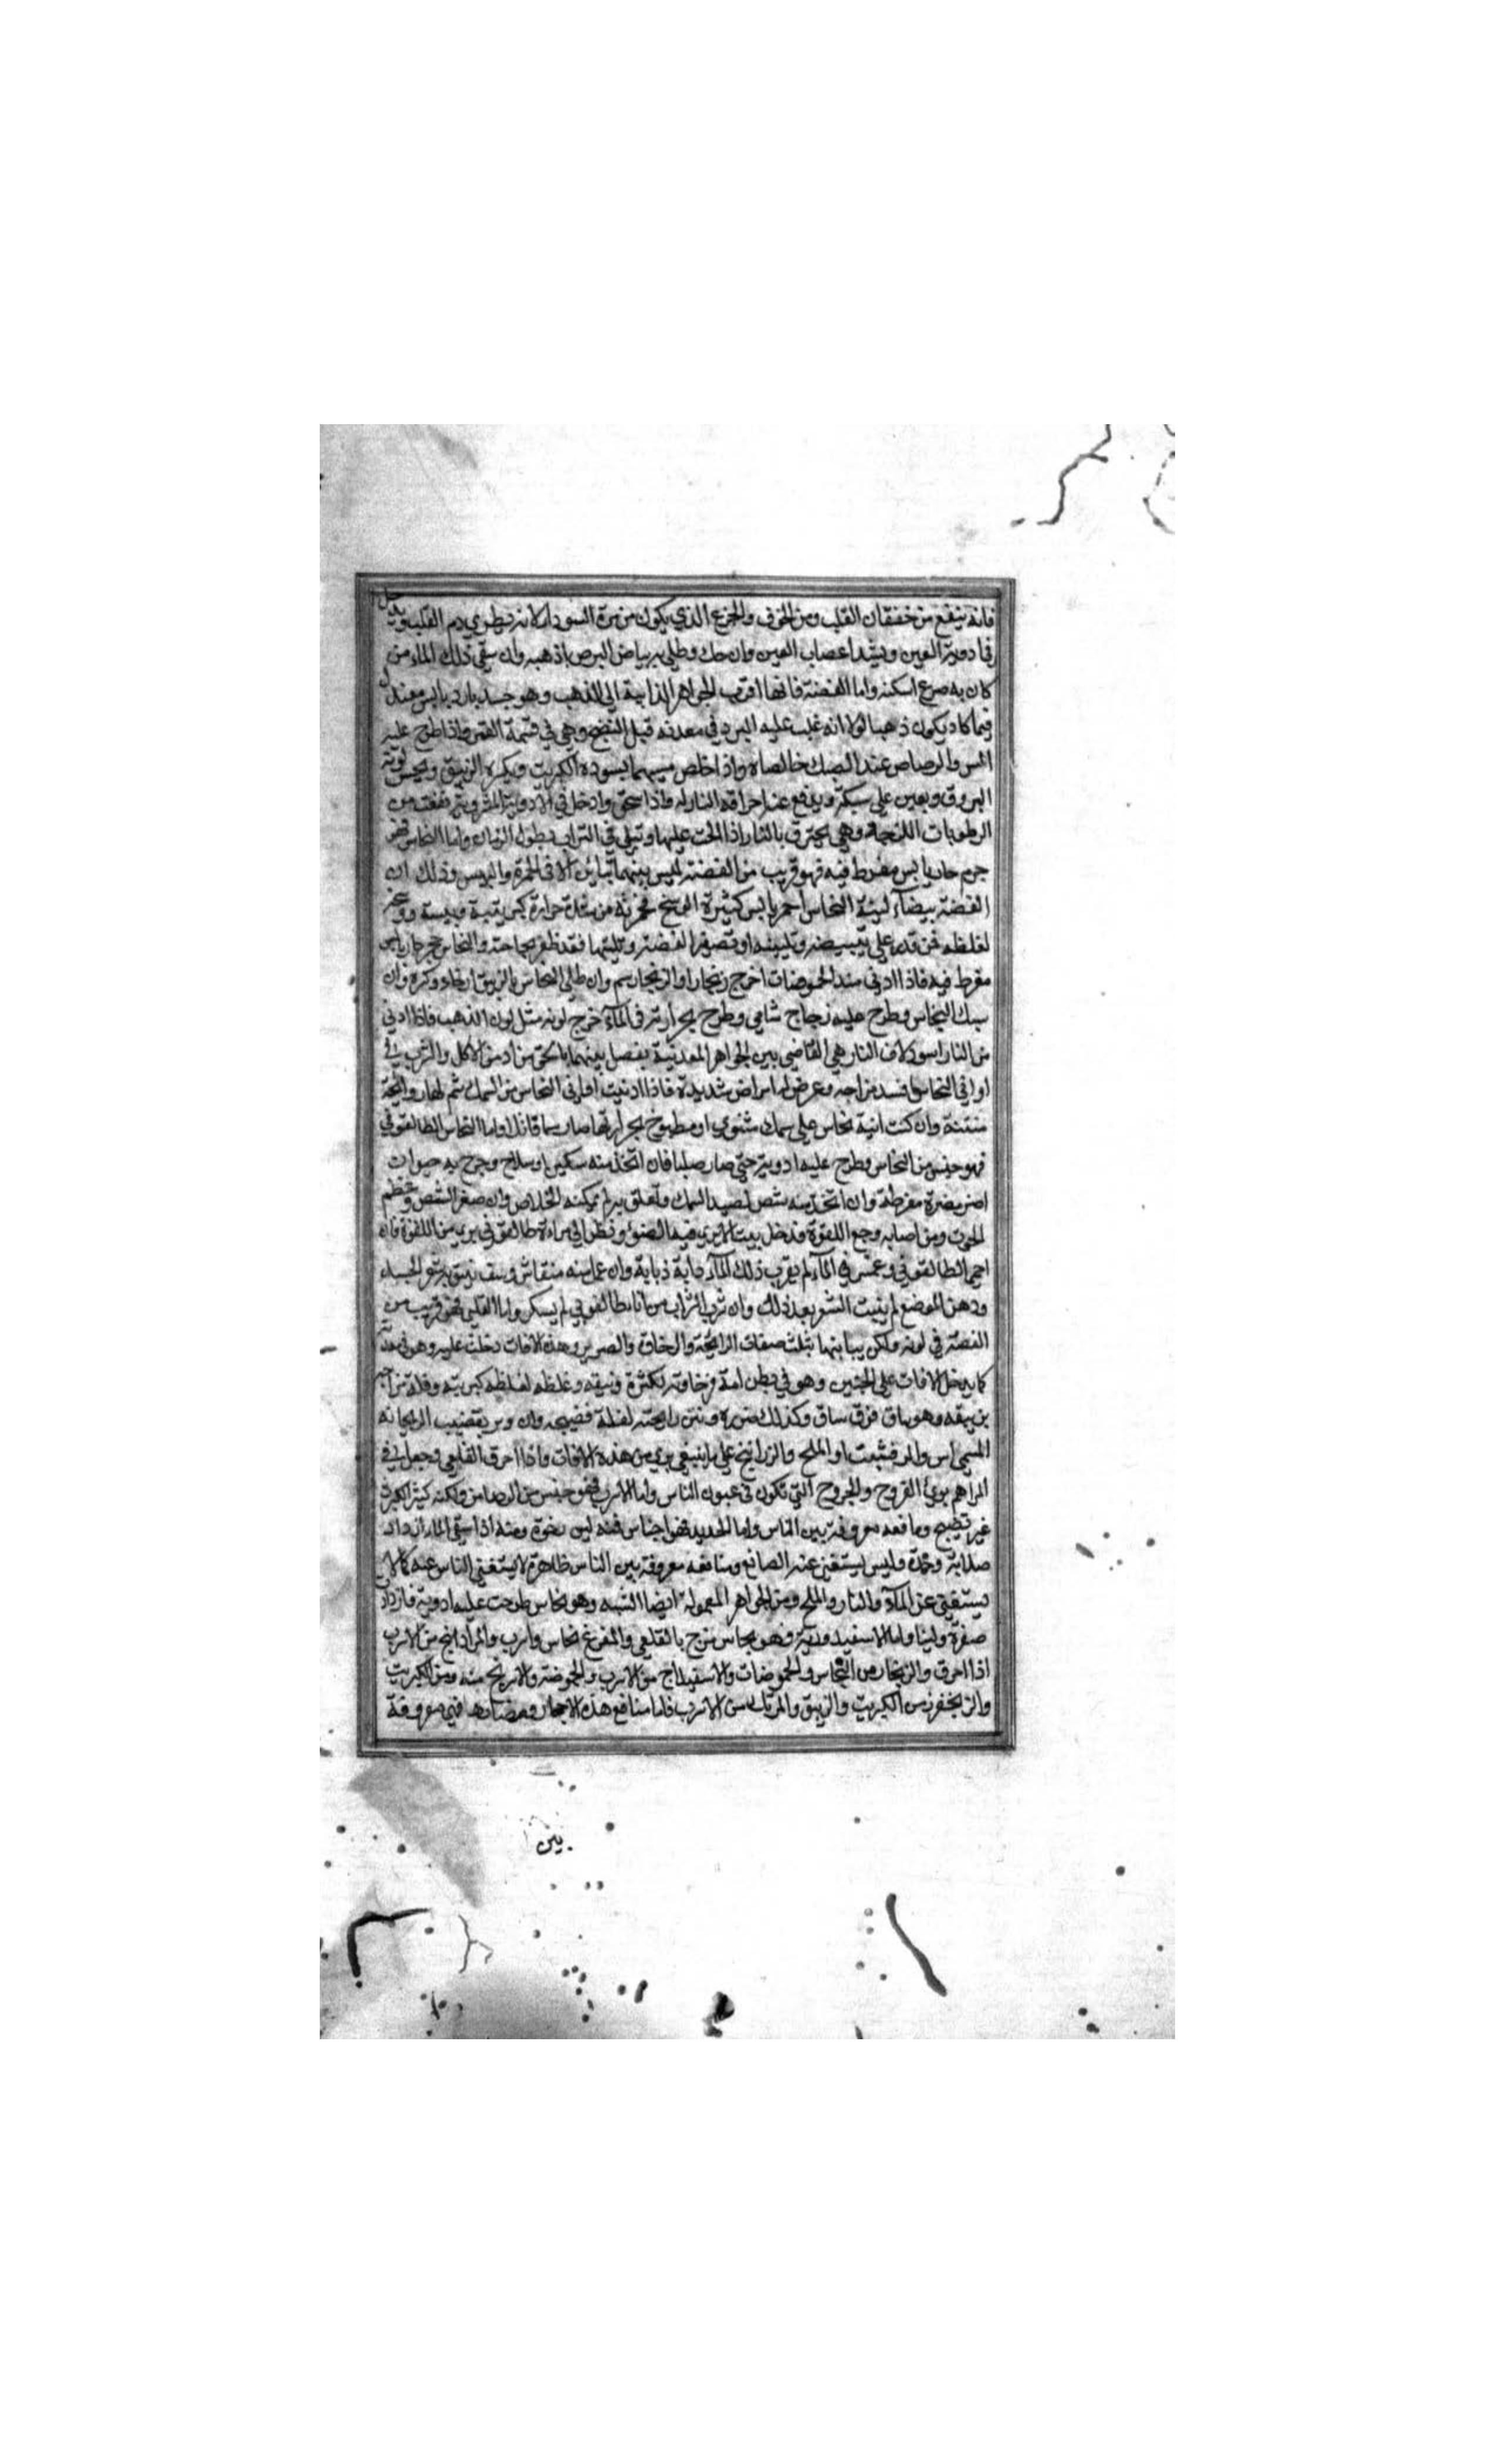 فانه ينفع من خفقان القلب ومن الخوف والجزع الذي يكون من مرة السوداء لانه يطري دم القلب ويدخل
في ادوية العين ويشد اعصاب العين وان حك وطلي به بياض البرص اذهبه وان سقي ذلك الماء من
كان به صرع اسكنه واما الفضة فانها اقرب الجواهر الذايبة الي الذهب وهو جسد بارد يابس معتدل
فيما كاد يكون ذهبا لولا انه غلب عليه البرد في معدنه قبل النضج وهي في قسمة القمر واذا طرح عليه
المس والرصاص عند السبك خالصاه واذا خلص منهما يسوده الكبريت ويكسره الزيبق ويحسن لونه
البروق ويعين علي سبكه ويدفع عنه احراقه النار له واذا سحق وادخل في الادوية المشروبة نفعت من
الرطوبات اللزجة وهي يحترق بالنار اذا الحت عليها وتبلي في التراب بطول الزمان واما النحاس فهو
جرم حار يابس مفرط فيه فهو قريب من الفضة ليس بينهما تباين الا في الحمرة واليبس وذلك ان
الفضة بيضاء لينة النحاس احمر يابس كثيرة الوسخ فحمرته من شدة حرارة كبريتية ويبسه ووسخه
لغلظه فمن قدر علي تبييضه وتليينه او تصفير الفضة وتليينها فقد ظفر بحاجته والنحاس حجر حار يابس
مفرط فيه فاذا ادني منه الحموضات اخرج زنجارا والزنجار سم وان طلي النحاس بالزيبق ارخاه وكسره وان
سبك النحاس وطرح عليه زجاج شامي وطرح بحرارته في الماء خرج لونه مثل لون الذهب فاذا ادني
من النار اسود لان النار هي القاضي بين الجواهر المعدنية يفصل بينهما بالحق من ادمن الاكل والشرب في
اواني النحاس افسد مزاجه وعرض له امراض شديدة فاذا ادنيت اواني النحاس من السمك شم لها روايحة
منتنة وان كبت انية نحاس علي سمك مشوي او مطبوخ بحرارتها صار سما قاتلا واما النحاس الطالقوني
فهو جنس من النحاس وطرح عليه ادوية حتي صار صلبا فان اتخذ منه سكين او سلاح وجرح به حيوان
اضر مضرة مفرطة وان اتخذ منه شص لصيد السمك وتعلق به لم يمكنه الخلاص وان صغر الشص وعظم
الحوت ومن اصابه وجع اللقوة فدخل بيت لا يري فيه الضوء ونظر الي مراة طالقوني بري من اللقوة فان
احمي الطالقوني وغمس في الماء لم يقرب ذلك الماء دابة ذبابة وان عمل منه منقاش ونتف به شعر الجسد
ودهن الموضع لم ينبت الشعر بعد ذلك وان شرب الشراب من اناء طالقوني لم يسكر واما القلعي فهو قريب من
الفضة في لونه ولكن يباينها بثلث صفات الرايحة والرخاوة والصرير وهذه الافات دخلت عليه وهو في معدنه
كما يدخل الافات علي الجنين وهو في بطن امه فرخاوته لكثرة زيبقه وغلظه لغلظه كبريته وقلة مزاجه
بزيبقه وهو ساق فوق ساق وكذلك صريره ونتن رايحته لقلة نضيجه وان دبر بقضيب الريحانة
المسمي اس والمرقشيثا والملح والزرانيخ علي ما ينبغي بري من هذه الافات واذا احرق القلعي وجعل في
المراهم بري القروح والجروح التي تكون في عيون الناس واما الاسرب فهو جنس من الرصاص ولكنه كثير الكبريت
غير نضيج ومنافعه معروفة بين الناس واما الحديد فهو اجناس فمنه لين رخوة ومنه اذا سقي الماء ازداد
صلابة وحدة وليس يستغني عنه الصانع ومنافعه معروفة بين الناس ظاهرة لا يستغني الناس عنه كما لا
يستغني عن الماء والنار والملح ومن الجواهر المعمولة ايضا الشبه وهو نحاس طرحت عليه ادوية فازداد
صفرة ولينا واما الاسفيدورية فهو نحاس مزج بالقلعي والمفرغ نحاس واسرب والمراداسنج من الاسرب
اذا احرق والزنجار من النحاس والحموضات والاسفيداج من الاسرب والحموضة والاسرنج منه ومن الكبريت
والزنجفر من الكبريت والزيبق والمرتك من الاسرب فاما منافع هذه الاحجار ومضارها فهي معروفة
بين